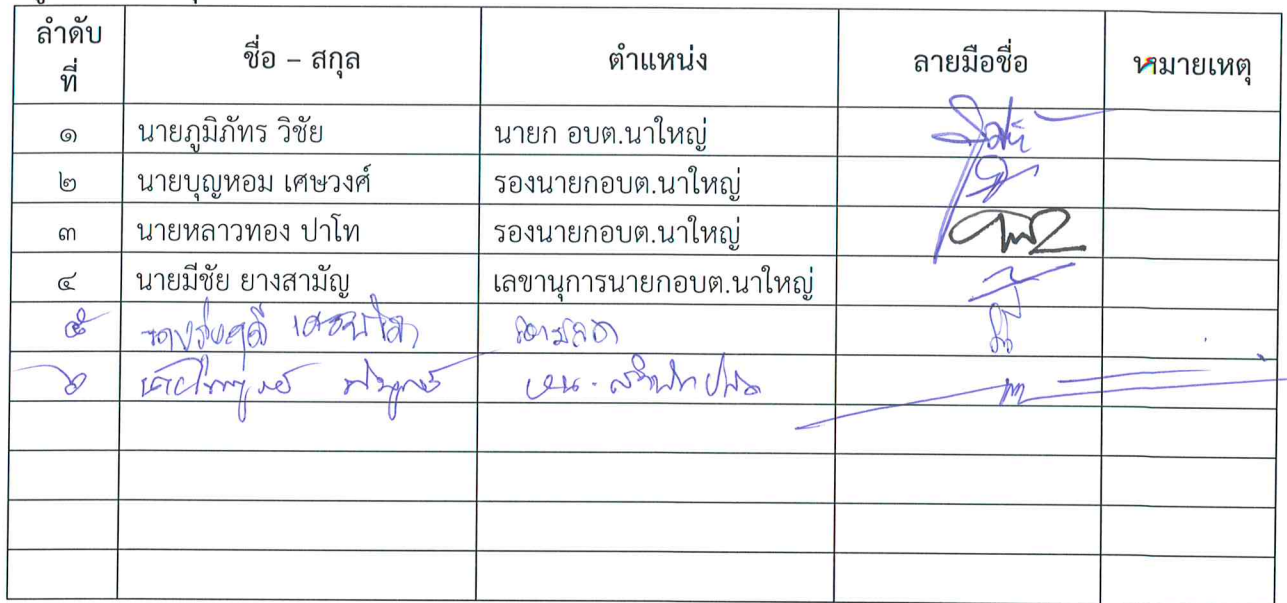 ลำดับ
ที่
ชื่อ – สกุล
ตำแหน่ง
ลายมือชื่อ
หมายเหตุ
๑ นายภูมิภัทร วิชัย นายก อบต.นาใหญ่
๒ นายบุญหอม เศษวงศ์ รองนายกอบต.นาใหญ่
๓ นายหลาวทอง ปาโท รองนายกอบต.นาใหญ่
๔ นายมีชัย ยางสามัญ เลขานุการนายกอบต.นาใหญ่
๕
๖